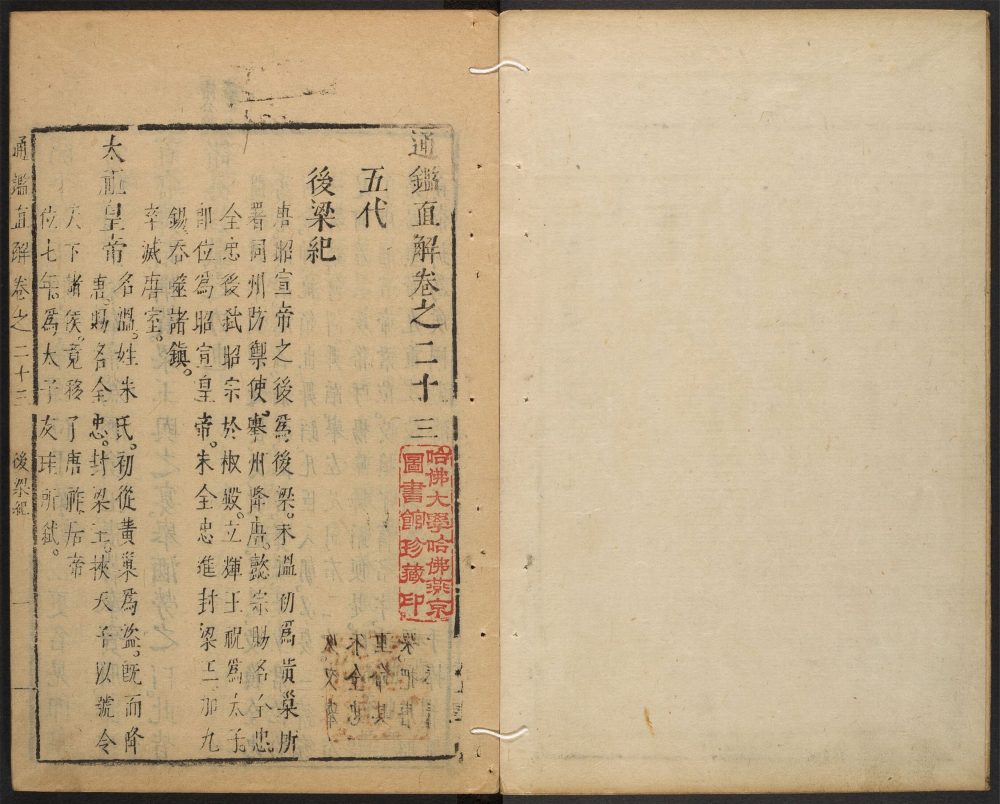 通鑑直解卷之二十三
哈佛大學哈佛燕京
圖書館珍藏印
五代
後梁紀
唐昭宣帝之後爲後梁。朱溫初爲黃巢所
署同州防禦使。舉州降唐。懿宗賜名全忠。
全忠後弑昭宗於椒殿。立輝王祝爲太子。
卽位爲昭宣皇帝。朱全忠進封梁王。加九
錫。吞噬諸鎮。
卒滅唐室。
太祖皇帝
名溫。姓朱氏。初從黃巢爲盜。旣而降
唐。賜名全忠。封梁王。挾天子以號令
天下諸侯。竟移了唐祚。居帝
位七年。爲太子友珪所弑。
通鑑直解卷之二十三
後梁紀
一